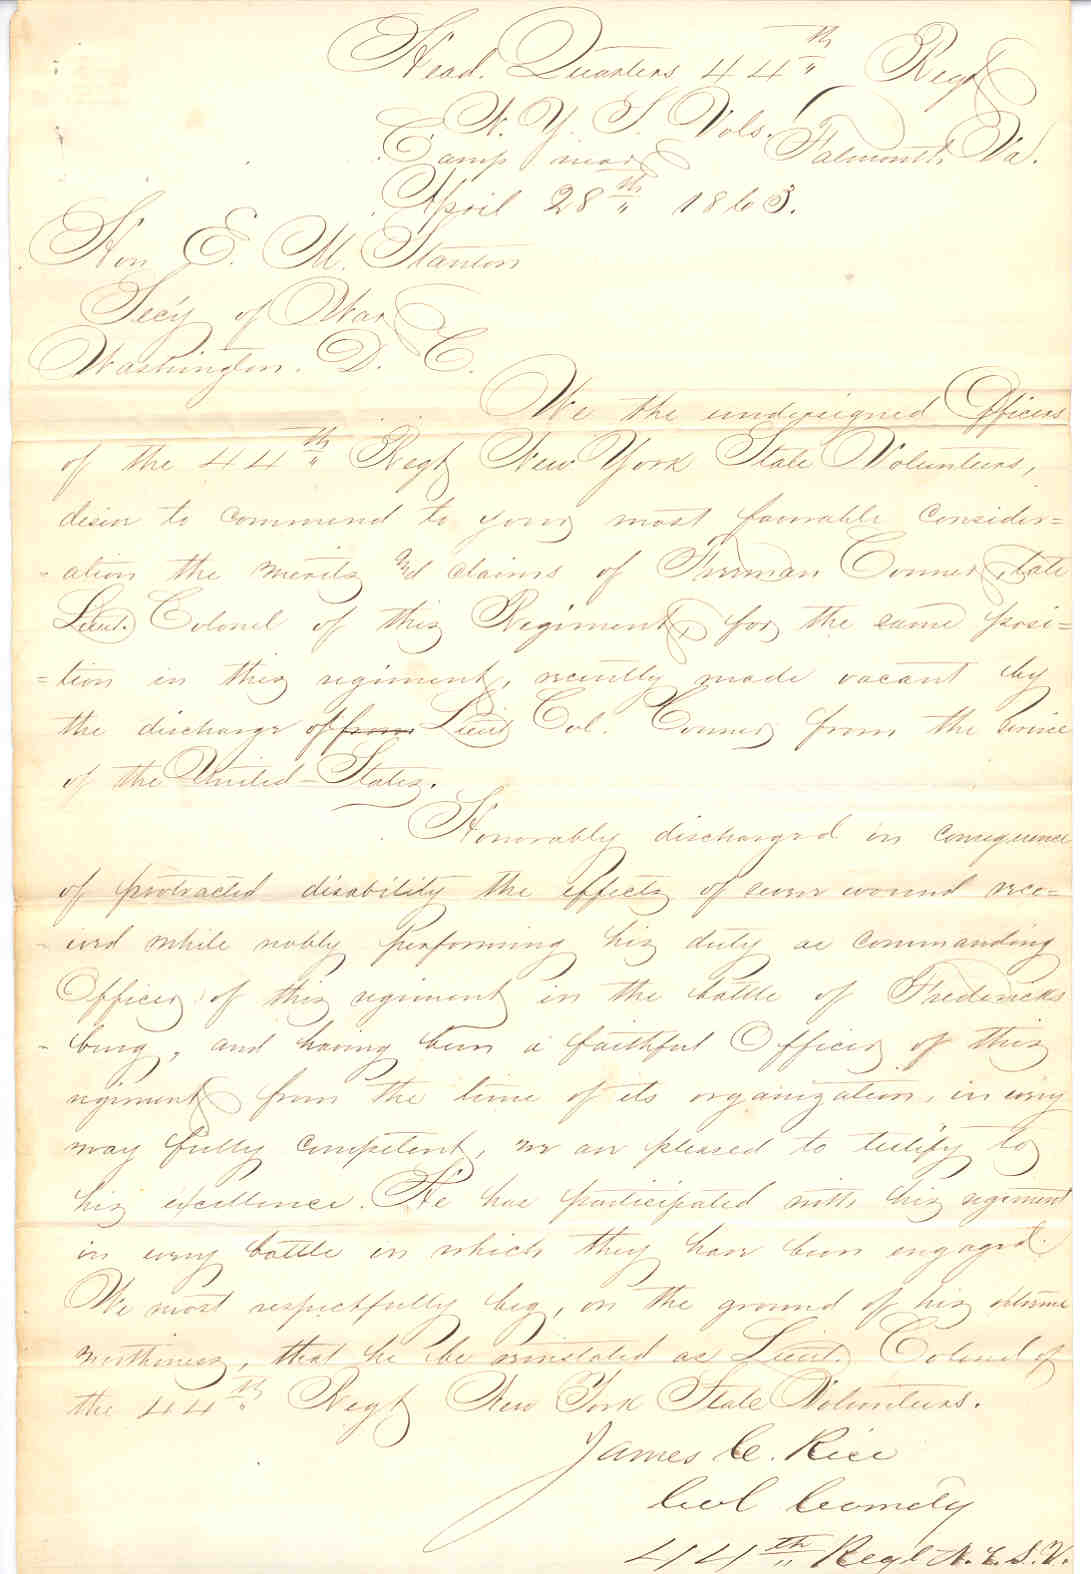 Head. Quarters 44th Regt
N. Y. S. Vols.
Camp near Falmouth, Va.
April 28th 1863.
Hon E. M. Stanton
Sec'y of War
Washington. D. C.
We the undersigned Officers
of the 44th Regt New York State Volunteers,
desire to commend to your most favorable consider=
-ation the merits and claims of Freeman Conner, late
Lieut. Colonel of this Regiment, for the same posi=
=tion in this regiment, recently made vacant by
the discharge of from Lieut Col. Conner from the service
of the United-States.
Honorably discharged in consequence
of protracted disability the effects of severe wound rece=
-ived while nobly performing his duty as commanding
Officer of this regiment in the battle of Fredericks
-burg, and having been a faithful Officer of this
regiment from the time of its organization, in every
way fully competent, we are pleased to testify to
his excellence. He has participated with his regiment
in every battle in which they have been engaged.
We most respectfully beg, on the ground of his
worthiness, that he be reinstated as Lieut. Colonel of
the 44th Regt New York State Volunteers.
James C. Rice
Col Comdg
44th Regt N.Y.S.V.